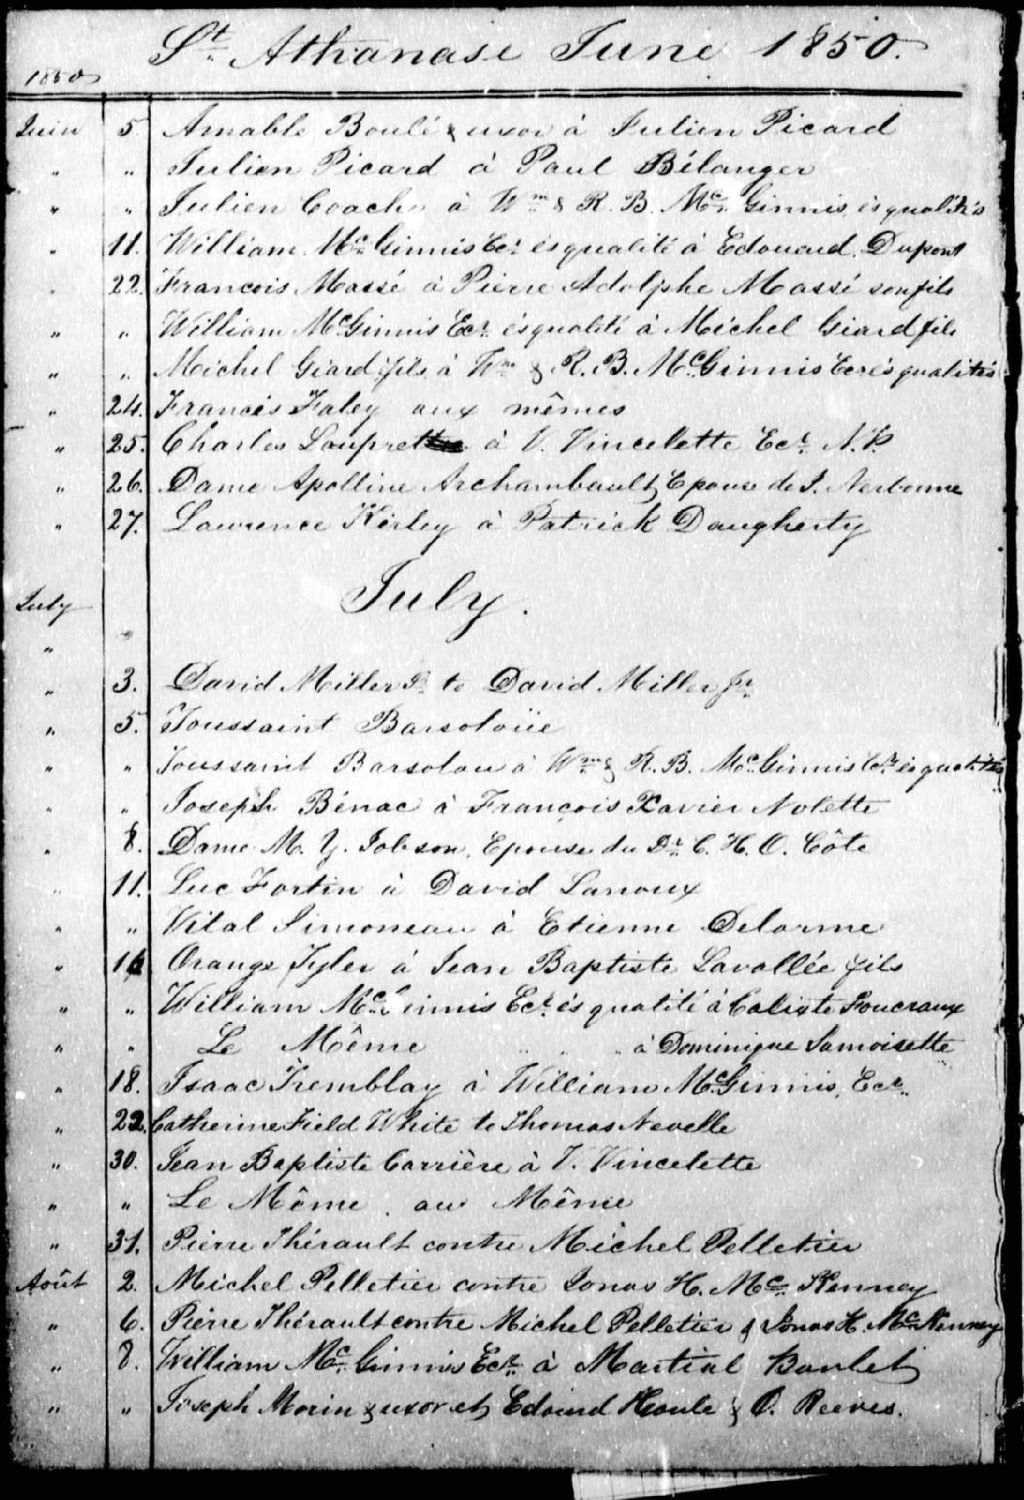 St. Athanase June 1850.
1850
Juin 5 Amable Boulé & uxor à Julien Picard
" " Julien Picard à Paul Bélanger
" " Julien Coache à Wm & R. B. Mc Ginnis ésqualités
" 11. William Mc Ginnis Ecr ésqualité à Edouard Dupont
" 22. Francois Massé à Pierre Adolphe Massé son fils
" " William McGinnis Ecr ésqualité à Michel Giard fils
" " Michel Giard fils à Wm & R. B. McGinnis Ecr ésqualités
" 24. Francis Faley aux mêmes
" 25. Charles à V. Vincelette Ecr N. P.
" 26. Dame Apolline Archambault Epouse de J. Narbonne
" 27. Lawrence Kirley à Patrick Daugherty
July July.
"
" 3. David Miller Sr to David Miller Jr
" 5. Toussaint Barsoloüe
" " Toussaint Barsolou à Wm & R. B. Mc Ginnis Ecr ésqualités
" " Joseph Bénac à François Xavier Nolette
" 8. Dame M. Y. Jobson, Epouse du Dr. C. H. O. Côte
" 11. Luc Fortin à David Lanoux
" " Vital Simoneau à Etienne Delorme
" 16 Orange Tyler à Jean Baptiste Lavallée fils
" " William Mc Ginnis Ecr ésqualité à Calixte Foucraux
" " Le Même à Dominique Lamoisette
" 18. Isaac Tremblay à William McGinnis, Ecr.
" 22. Catherine Field White to Thomas Nevelle
" 30. Jean Baptiste Carrière à V. Vincelette
" " Le Même au Même
" 31. Pierre Thérault contre Michel Pelletier
Août 2. Michel Pelletier contre Jonas H. Mc Kenney
" 6. Pierre Thérault contre Michel Pelletier & Jonas H. Mc Kenney
" 8. William Mc Ginnis Ecr. à Martial
" " Joseph Morin & uxor et Edouard Houle & O. Reeves.